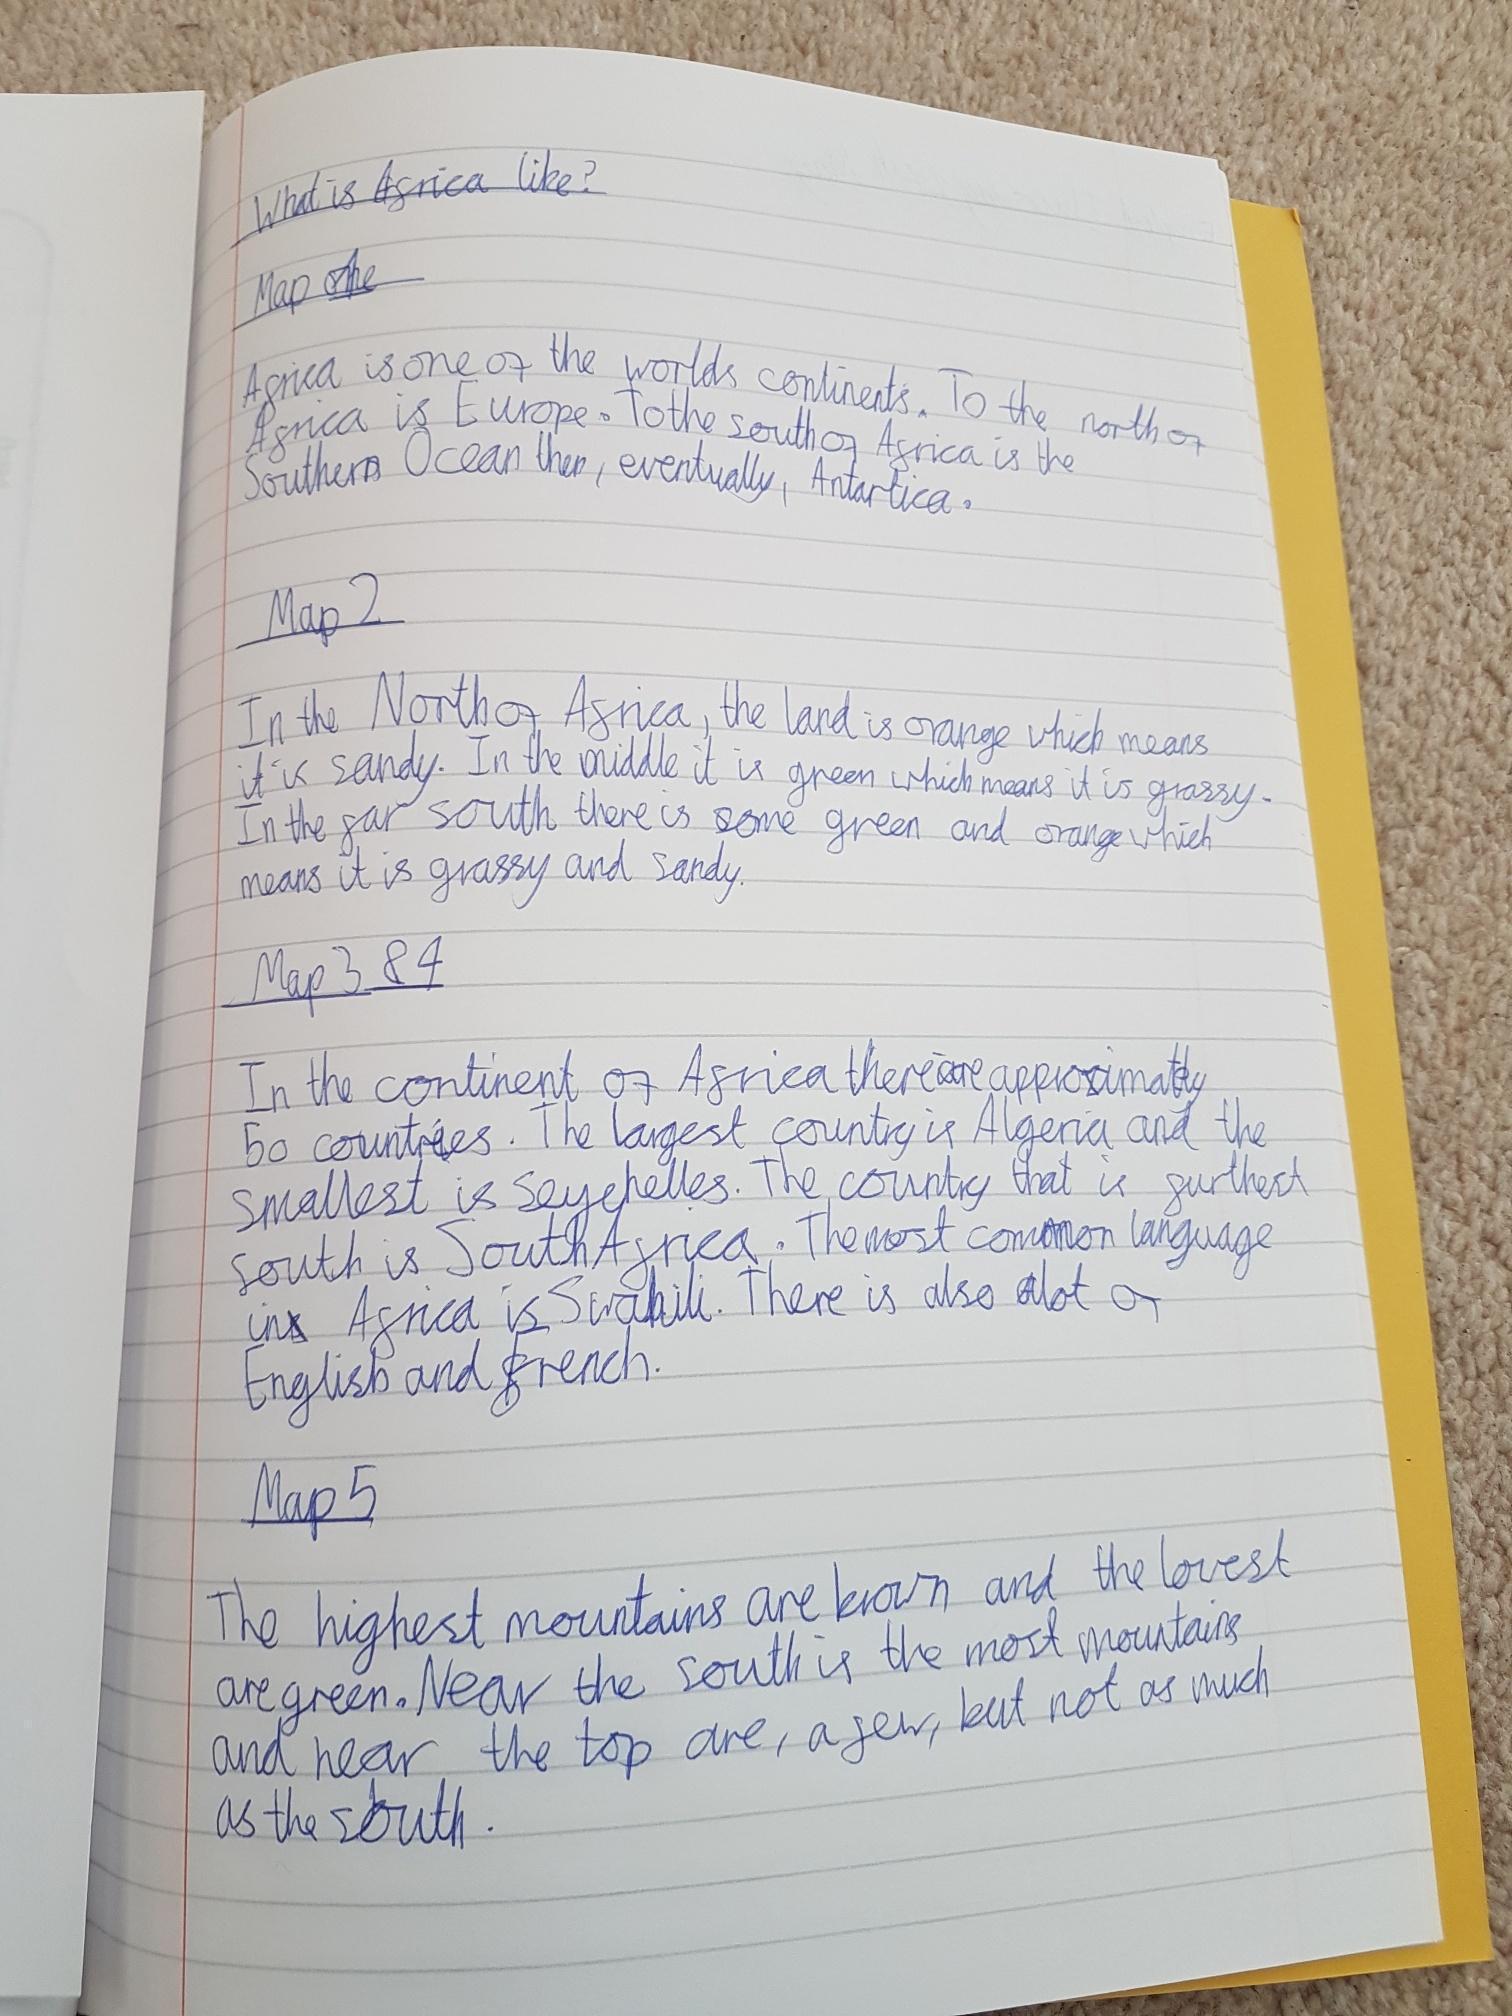 What is Africa like?
Map One
Africa is one of the worlds continents. To the north of
Africa is Europe. To the south of Africa is the
Southern Ocean then, eventually, Antartica.
Map 2
In the North of Africa, the land is orange which means
it is sandy. In the middle it is green which means it is grassy.
In the far south there is some green and orange which
means it is grassy and sandy.
Map 3 & 4
In the continent of Africa there are approximatly
50 countries. The largest country is Algeria and the
smallest is Seychelles. The country that is furthest
south is South Africa. The most common language
in Africa is Swahili. There is also alot of
English and French.
Map 5
The highest mountains are brown and the lowest
are green. Near the south is the most mountains
and near the top are, a few, but not as much
as the south.